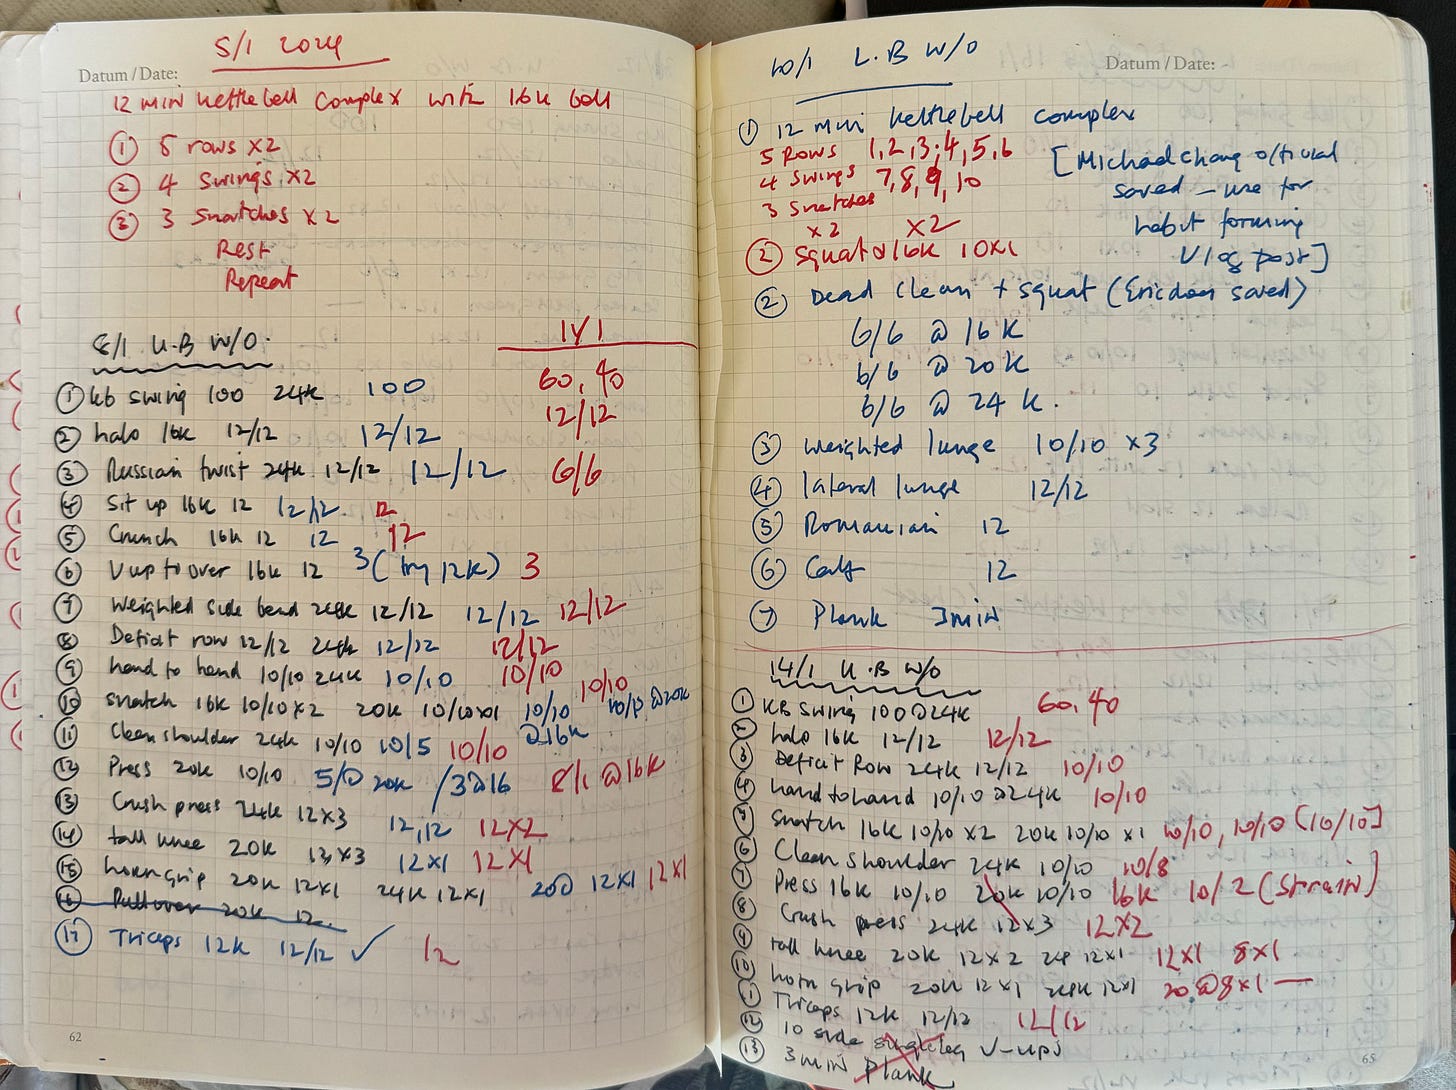 5/1 2024
Datum/Date:
12 min kettlebell complex with 16k bell
① 5 rows x2
② 4 swings x2
③ 3 snatches x2
Rest
Repeat
8/1 U.B W/O. 11/1
① kb swing 100 24k 100 60, 40
② halo 16k 12/12 12/12 12/12
③ Russian twist 24k 12/12 12/12 6/6
④ Sit up 16k 12 12/12. 12
⑤ Crunch 16k 12 12 12
⑥ V up to over 16k 12 3 (try 12k) 3
⑦ Weighted side bend 24k 12/12 12/12 12/12
⑧ Deficit row 12/12 24k 12/12 12/12
⑨ hand to hand 10/10 24k 10/10 10/10
⑩ snatch 16k 10/10 x2 20k 10/10 x1 10/10 @16k 10/10 @20k 10/10
⑪ Clean shoulder 24k 10/10 10/5 10/10
⑫ Press 20k 10/10 5/0 20k /3@16 8/1 @16k
⑬ Crush press 24k 12x3 12,12 12x2
⑭ tall knee 20k 12x3 12x1 12x1
⑮ horn grip 20k 12x1 24k 12x1 20@ 12x1 12x1
⑯ Pullover 20k 12
⑰ Triceps 12k 12/12 ✓ 12
62
10/1 L.B W/O
Datum/Date:
① 12 min kettlebell complex
5 Rows 1,2,3,4,5,6
4 swings 7,8,9,10
3 snatches
x2 x2
[Michael Chang official
saved - use for
habit forming
Vlog post]
② Squat @ 16k 10x1
② Dead clean + squat (Ericdom saved)
6/6 @ 16k
6/6 @ 20k
6/6 @ 24k.
③ Weighted lunge 10/10 x3
④ lateral lunge 12/12
⑤ Romanian 12
⑥ Calf 12
⑦ Plank 3min
14/1 U.B W/O
① KB Swing 100@24k 60, 40
② halo 16k 12/12 12/12
③ Deficit Row 24k 12/12 10/10
④ hand to hand 10/10 @24k 10/10
⑤ Snatch 16k 10/10 x2 20k 10/10 x1 10/10, 10/10 [10/10]
⑥ Clean shoulder 24k 10/10 10/8
⑦ Press 16k 10/10 20k 10/10 16k 10/2 (Strain)
⑧ Crush press 24k 12x3 12x2
⑨ tall knee 20k 12x2 24 12x1 12x1 8x1
⑩ horn grip 20k 12x1 24k 12x1 20@8x1 —
⑪ Triceps 12k 12/12 12/12
⑫ 10 side single leg V-ups
⑬ 3 min Plank
65